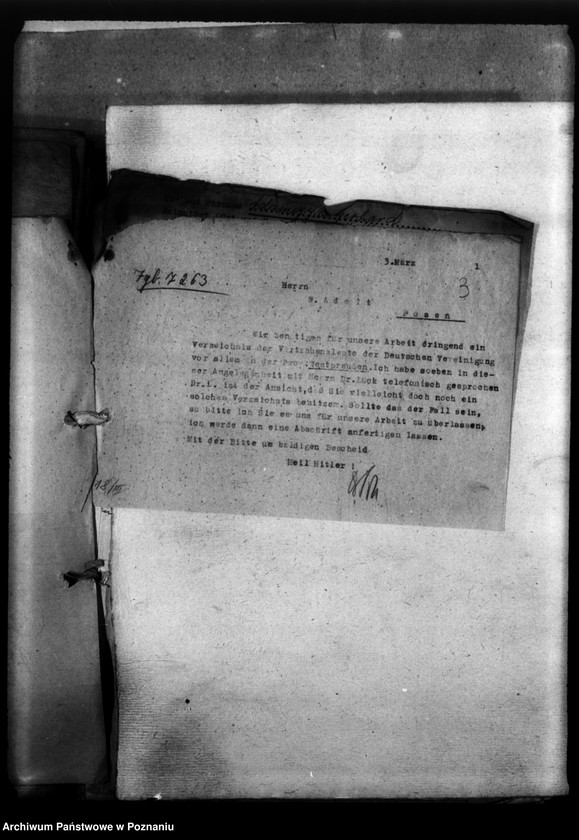 3.März 1
Tgb. 7263
3
Herrn
S. Adelt
Posen
Wir benötigen für unsere Arbeit dringend ein
Verzeichnis der Vertrauensleute der Deutschen Vereinigung
vor allem in der Prov. Westpreußen. Ich habe soeben in die-
ser Angelegenheit mit Herrn Dr. Lück telefonisch gesprochen
Dr.L. ist der Ansicht, daß Sie vielleicht doch noch ein
solches Verzeichnis besitzen. Sollte das der Fall sein,
so bitte ich Sie es uns für unsere Arbeit zu überlassen,
ich werde dann eine Abschrift anfertigen lassen.
Mit der Bitte um baldigen Bescheid
Heil Hitler !
Archiwum Państwowe w Poznaniu